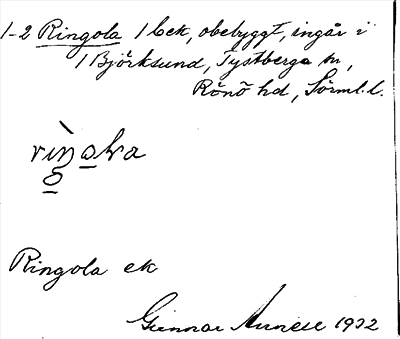 1-2 Ringola 1 bek, obebyggt, ingår i
1 Björksund, Tystberga sn,
Rönö hd, Sörml. l.
Ringola ek
Gunnar 1932